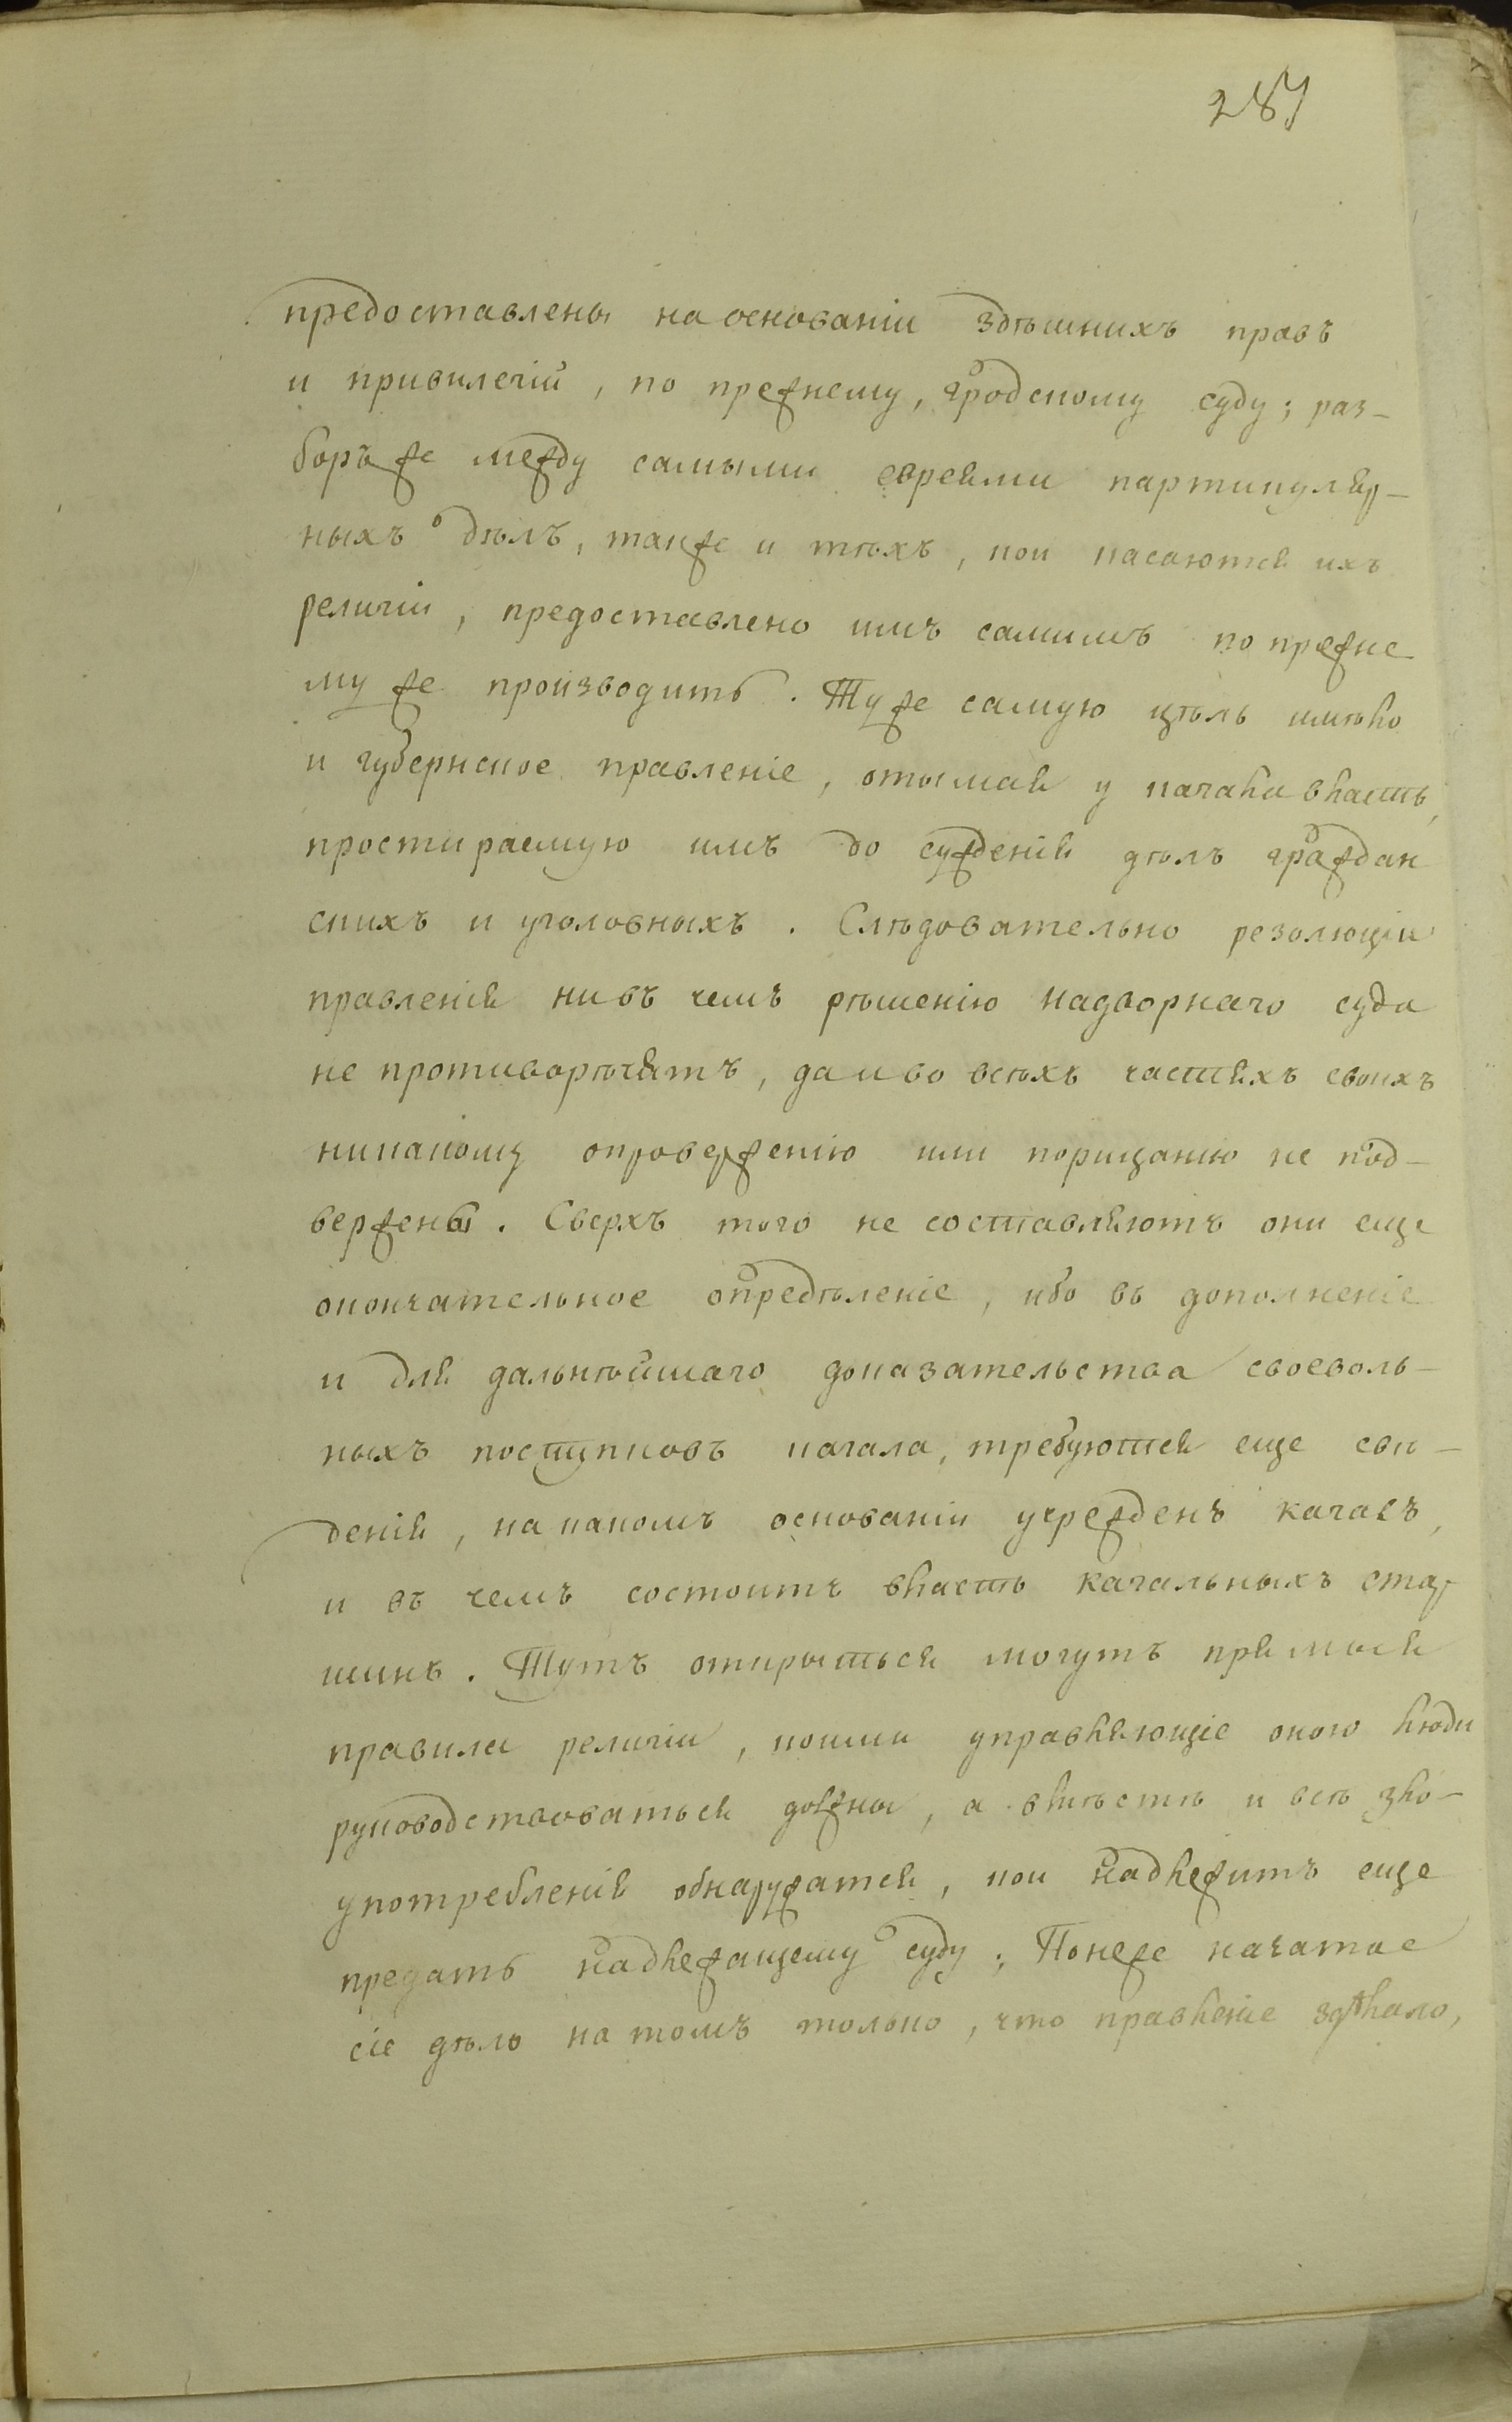 287
предоставлены на основаніи здѣшнихъ правъ
и привилегій, по прежнему, гродскому суду; раз-
боръ же между самыми евреями партикуляр-
ныхъ дѣлъ, также и тѣхъ, кои касаются ихъ
религіи, предоставлено имъ самимъ по прежне
му же производить. Туже самую цѣль имѣло
и губернское правленіе, отымая у кагала власть,
простираемую имъ до сужденія дѣлъ граждан
скихъ и уголовныхъ. Слѣдовательно резолюціи
правленія ни въ чемъ рѣшенію надворнаго суда
не противорѣчятъ, да и во всѣхъ частяхъ своихъ
никакому опроверженію или порицанію не под-
вержены. Сверхъ того не составляютъ они еще
окончательное опредѣленіе, ибо въ дополненіе
и для дальнѣйшаго доказательства своеволь-
ныхъ поступковъ кагала, требуются еще свѣ-
денія, на какомъ основаніи учрежденъ кагалъ,
и въ чемъ состоитъ власть кагальныхъ стар
шинъ. Тутъ открыться могутъ прямыя
правила религіи, коими управляющіе оною люди
руководствоваться должны, а вмѣстѣ и всѣ зло-
употребленія обнаружатся, кои надлежитъ еще
предать надлежащему суду; Понеже начатое
сіе дѣло на томъ только, что правленіе